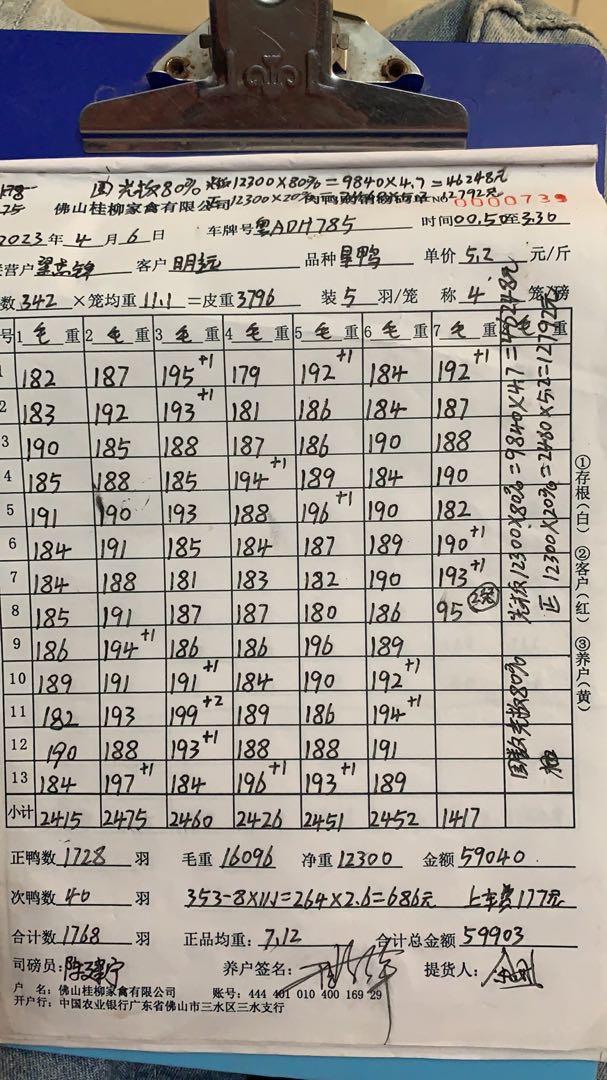 178 因光板80% 光板12300×80%=9840×4.7=46248元
75 佛山桂柳家禽有限公司 正12300×20% 肉鸭购销磅码单 NO 2792元 0000739
2023年4月6日 车牌号粤ADH785 时间00.50至3.30
营户 客户明记 品种 鸭 单价5.2元/斤
数342×笼均重11.1=皮重3796 装5羽/笼 称4笼/磅
号 1毛重 2毛重 3毛重 4毛重 5毛重 6毛重 7毛重 重
1 182 187 195+1 179 192+1 184 192+1
2 183 192 193+1 181 186 184 187
3 190 185 188 187 186 190 188
4 185 188 185 194+1 189 184 190
5 191 190 193 188 196+1 190 182
6 184 191 185 184 187 189 190+1
7 184 188 181 183 182 190 193+1
8 185 191 187 187 180 186 95
9 186 194+1 186 186 196 189
10 189 191 191+1 184 190 192+1
11 182 193 199+2 189 186 194+1
12 190 188 193+1 188 188 191
13 184 197+1 184 196+1 193+1 189
小计 2415 2475 2460 2426 2451 2452 1417
光板12300×80%=9840×4.7=46248元
正 12300×20%=2460×5.2=12792元
因 光板80%
①存根(白) ②客户(红) ③养户(黄)
正鸭数1728羽 毛重16096 净重12300 金额59040
次鸭数40羽 353-8×11.1=264×2.6=686元 上车费177元
合计数1768羽 正品均重:7.12 合计总金额59903
司磅员: 养户签名: 提货人:
户 名:佛山桂柳家禽有限公司 账号:444 401 010 400 169 29
开户行:中国农业银行广东省佛山市三水区三水支行